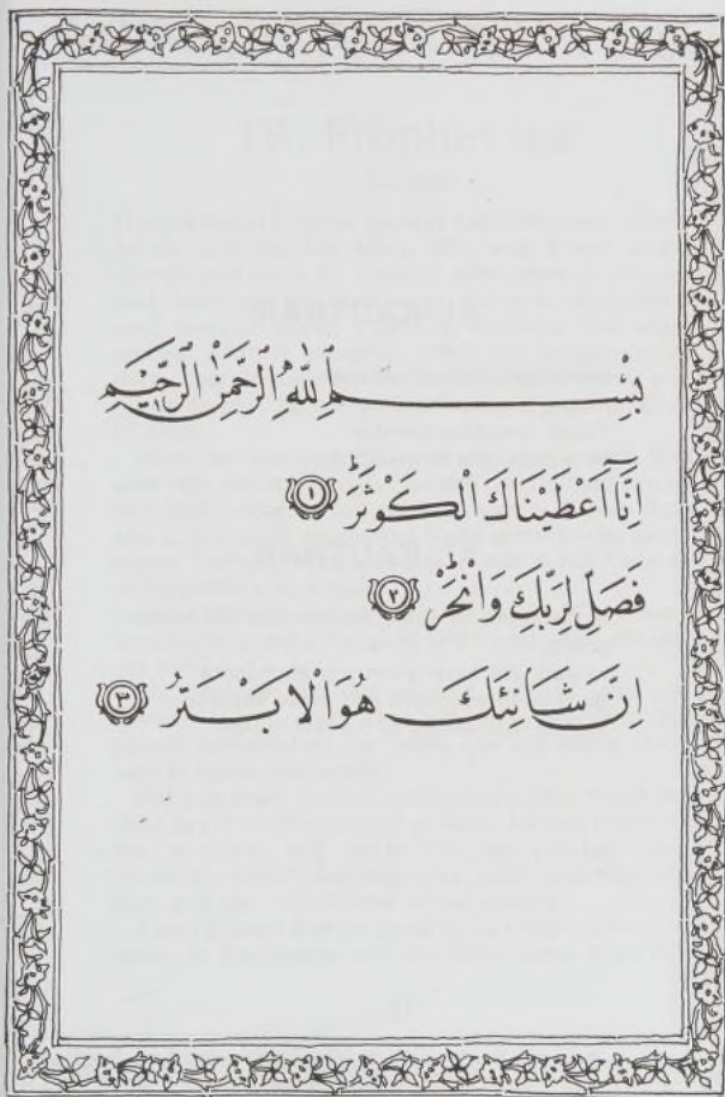 بِسْمِ اللّٰهِ الرَّحْمٰنِ الرَّحِيْمِ
اِنَّآ اَعْطَيْنَاكَ الْكَوْثَرَ ۱
فَصَلِّ لِرَبِّكَ وَانْحَرْ ۲
اِنَّ شَانِئَكَ هُوَ الْاَبْتَرُ ۳